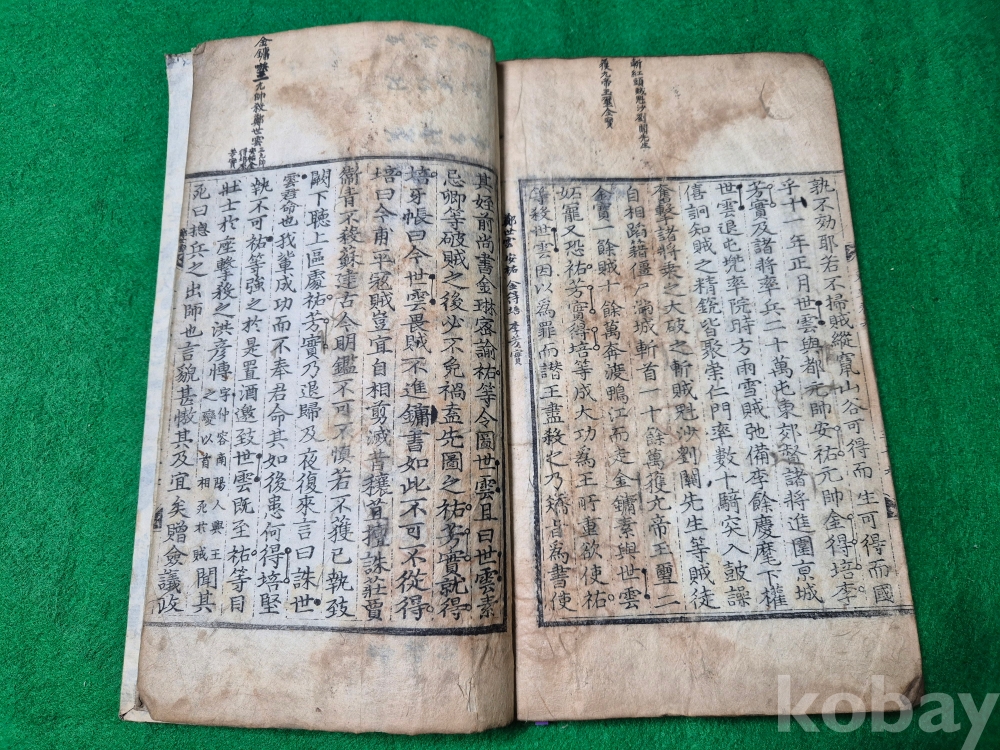 斬紅頭賊魁沙劉關先生
獲元帝玉璽金寶
孰不効耶若不掃賊縱竄山谷可得而生可得而國
乎十一年正月世雲與都元帥安祐元帥金得培李
芳實及諸將率兵二十萬屯東郊督諸將進圍京城
世雲退屯兜率院時方雨雪賊弛備李餘慶麾下權
僖詗知賊之精銳皆聚崇仁門率數十騎突入鼓譟
奮擊諸將乘之大破之斬賊魁沙劉關先生等賊徒
自相蹈藉僵尸滿城斬首一十餘萬獲元帝玉璽二
金寶一餘賊十餘萬奔渡鴨江而走金鏞素與世雲
妬寵又恐祐芳實得培等成大功為王所重欲使祐
等殺世雲因以為罪而譖王盡殺之乃矯旨為書使
鄭世雲 安祐 金得培 李芳實
金鏞 元帥殺鄭世雲
其姪前尚書金琳密諭祐等令圖世雲且曰世雲素
忌卿等破賊之後必不免禍盍先圖之祐芳實就得
培牙帳曰今世雲畏賊不進鏞書如此不可不從得
培曰今甫平寇賊豈宜自相剪滅昔穰苴擅誅莊賈
衛青不殺蘇建古今明鑑不可不慎若不獲已執致
闕下聽上區處祐芳實乃退歸及夜復來言曰誅世
雲君命也我輩成功而不奉君命其如後患何得培堅
執不可祐等強之於是置酒邀致世雲旣至祐等目
壯士於座擊殺之洪彥博字仲容南陽人興王之變以首相死於賊聞其
死曰摠兵之出師也言貌甚慠其及宜矣贈僉議政
kobay